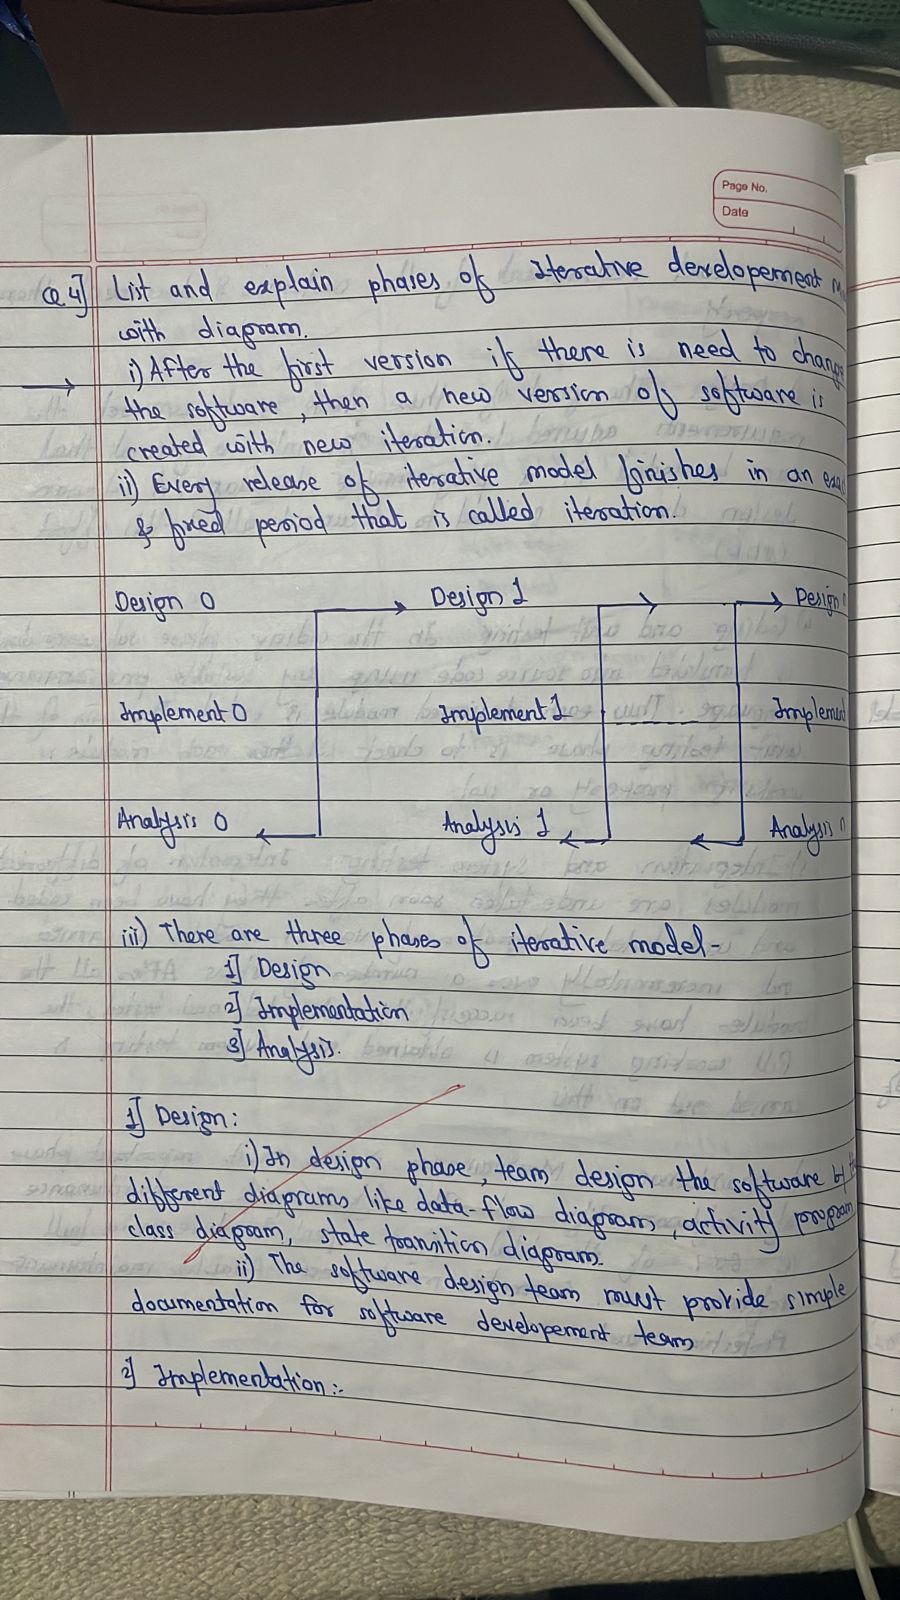 Page No.
Date
Q.4] List and explain phases of Iterative developement
with diagram.
→ i) After the first version if there is need to change
the software, then a new version of software is
created with new iteration.
ii) Every release of iterative model finishes in an
& fixed period that is called iteration.
Design 0 Design 1 Design n
Implement 0 Implement 1 Implement
Analysis 0 Analysis 1 Analysis n
iii) There are three phases of iterative model-
1] Design
2] Implementation
3] Analysis.
1] Design:
i) In design phase, team design the software by
different diagrams like data-flow diagram, activity program
class diagram, state transition diagram.
ii) The software design team must provide simple
documentation for software developement team
2] Implementation:-